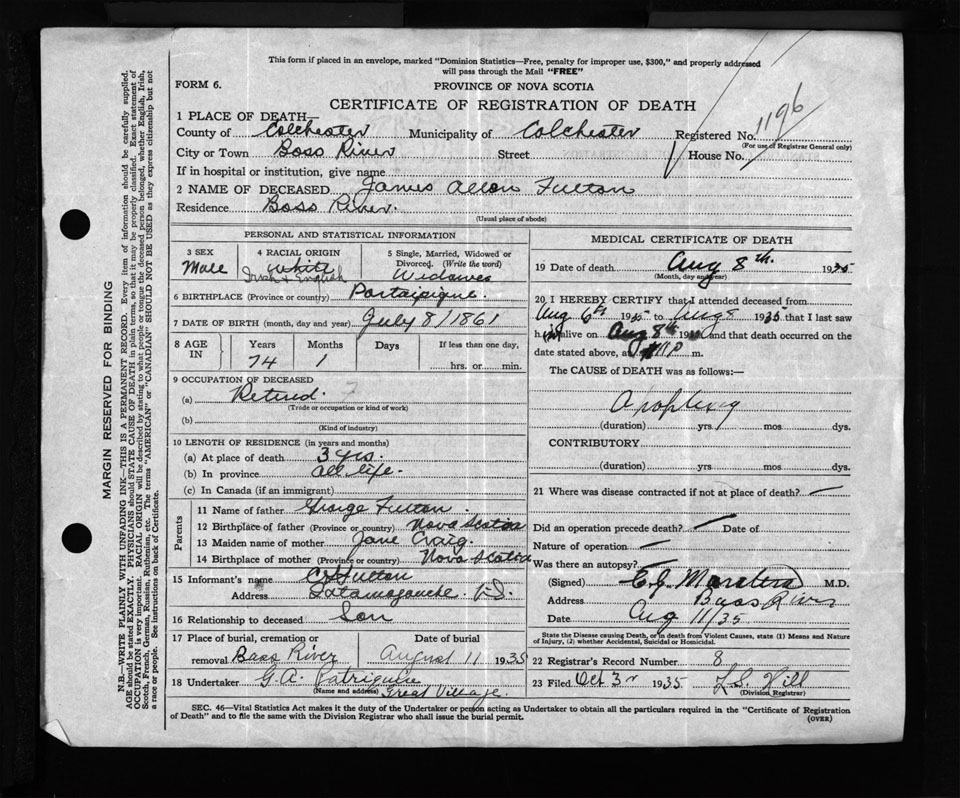 This form if placed in an envelope, marked "Dominion Statistics—Free, penalty for improper use, $300," and properly addressed
will pass through the Mail "FREE"
FORM 6.
PROVINCE OF NOVA SCOTIA
CERTIFICATE OF REGISTRATION OF DEATH
1196
1 PLACE OF DEATH—
County of Colchester Municipality of Colchester Registered No.
(For use of Registrar General only)
City or Town Bass River Street House No.
If in hospital or institution, give name
2 NAME OF DECEASED James Allan Fulton
Residence Bass River.
(Usual place of abode)
PERSONAL AND STATISTICAL INFORMATION
3 SEX 4 RACIAL ORIGIN 5 Single, Married, Widowed or Divorced. (Write the word)
Male White Irish & English Widower
6 BIRTHPLACE (Province or country) Portaupique.
7 DATE OF BIRTH (month, day and year) July 8/1861
8 AGE IN Years Months Days If less than one day,
74 1 hrs. or min.
9 OCCUPATION OF DECEASED
(a) Retired.
(Trade or occupation or kind of work)
(b)
(Kind of industry)
10 LENGTH OF RESIDENCE (in years and months)
(a) At place of death 3 yrs.
(b) In province all life.
(c) In Canada (if an immigrant)
Parents
11 Name of father George Fulton
12 Birthplace of father (Province or country) Nova Scotia
13 Maiden name of mother Jane Craig.
14 Birthplace of mother (Province or country) Nova Scotia
15 Informant's name Fulton
Address Tatamagouche N.S.
16 Relationship to deceased Son
17 Place of burial, cremation or Date of burial
removal Bass River August 11 1935
18 Undertaker G.A.
(Name and address) Great Village.
MEDICAL CERTIFICATE OF DEATH
19 Date of death Aug 8th. 1935
(Month, day and year)
20 I HEREBY CERTIFY that I attended deceased from
Aug 6th 1935 to Aug 8 1935 that I last saw
him alive on Aug 8th 19 and that death occurred on the
date stated above, at 11 P m.
The CAUSE of DEATH was as follows:
Apoplexy
(duration) yrs mos dys.
CONTRIBUTORY
(duration) yrs. mos. dys.
21 Where was disease contracted if not at place of death? —
Did an operation precede death? — Date of
Nature of operation —
Was there an autopsy? —
(Signed) M.D.
Address Bass River
Date Aug 11/35
State the Disease causing Death, or in death from Violent Causes, state (1) Means and Nature
of Injury, (2) whether Accidental, Suicidal or Homicidal.
22 Registrar's Record Number 8
23 Filed Oct 3rd 1935 L.S. Hill
(Division Registrar)
SEC. 46—Vital Statistics Act makes it the duty of the Undertaker or person acting as Undertaker to obtain all the particulars required in the "Certificate of Registration
of Death" and to file the same with the Division Registrar who shall issue the burial permit. (OVER)
MARGIN RESERVED FOR BINDING
N.B.—WRITE PLAINLY WITH UNFADING INK—THIS IS A PERMANENT RECORD. Every item of information should be carefully supplied.
AGE should be stated EXACTLY. PHYSICIANS should STATE CAUSE OF DEATH in plain terms, so that it may be properly classified. Exact statement of
OCCUPATION is very important. RACIAL ORIGIN will be described by stating to what people or tongue the deceased person belonged, whether English, Irish,
Scotch, French, German, Russian, Ruthenian, etc. The terms "AMERICAN" or "CANADIAN" SHOULD NOT BE USED as they express citizenship but not
a race or people. See instructions on back of Certificate.